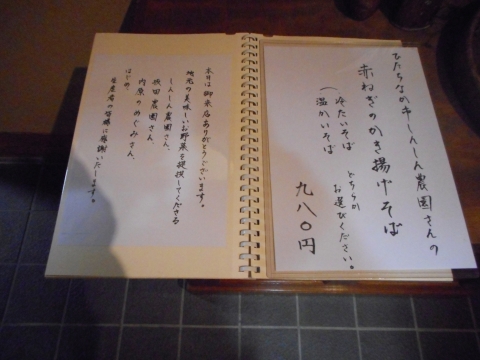 ひたちなか市しんしん農園さんの
赤ねぎのかき揚げそば
(冷たいそば
温かいそば
どちらか
お選びください。
九八〇円
本日は御来店ありがとうございます。
地元の美味しいお野菜を提供してくださる
しんしん農園さん、
秋田農園さん、
内原のめぐみさん、
はじめ
生産者の皆様に感謝いたします。